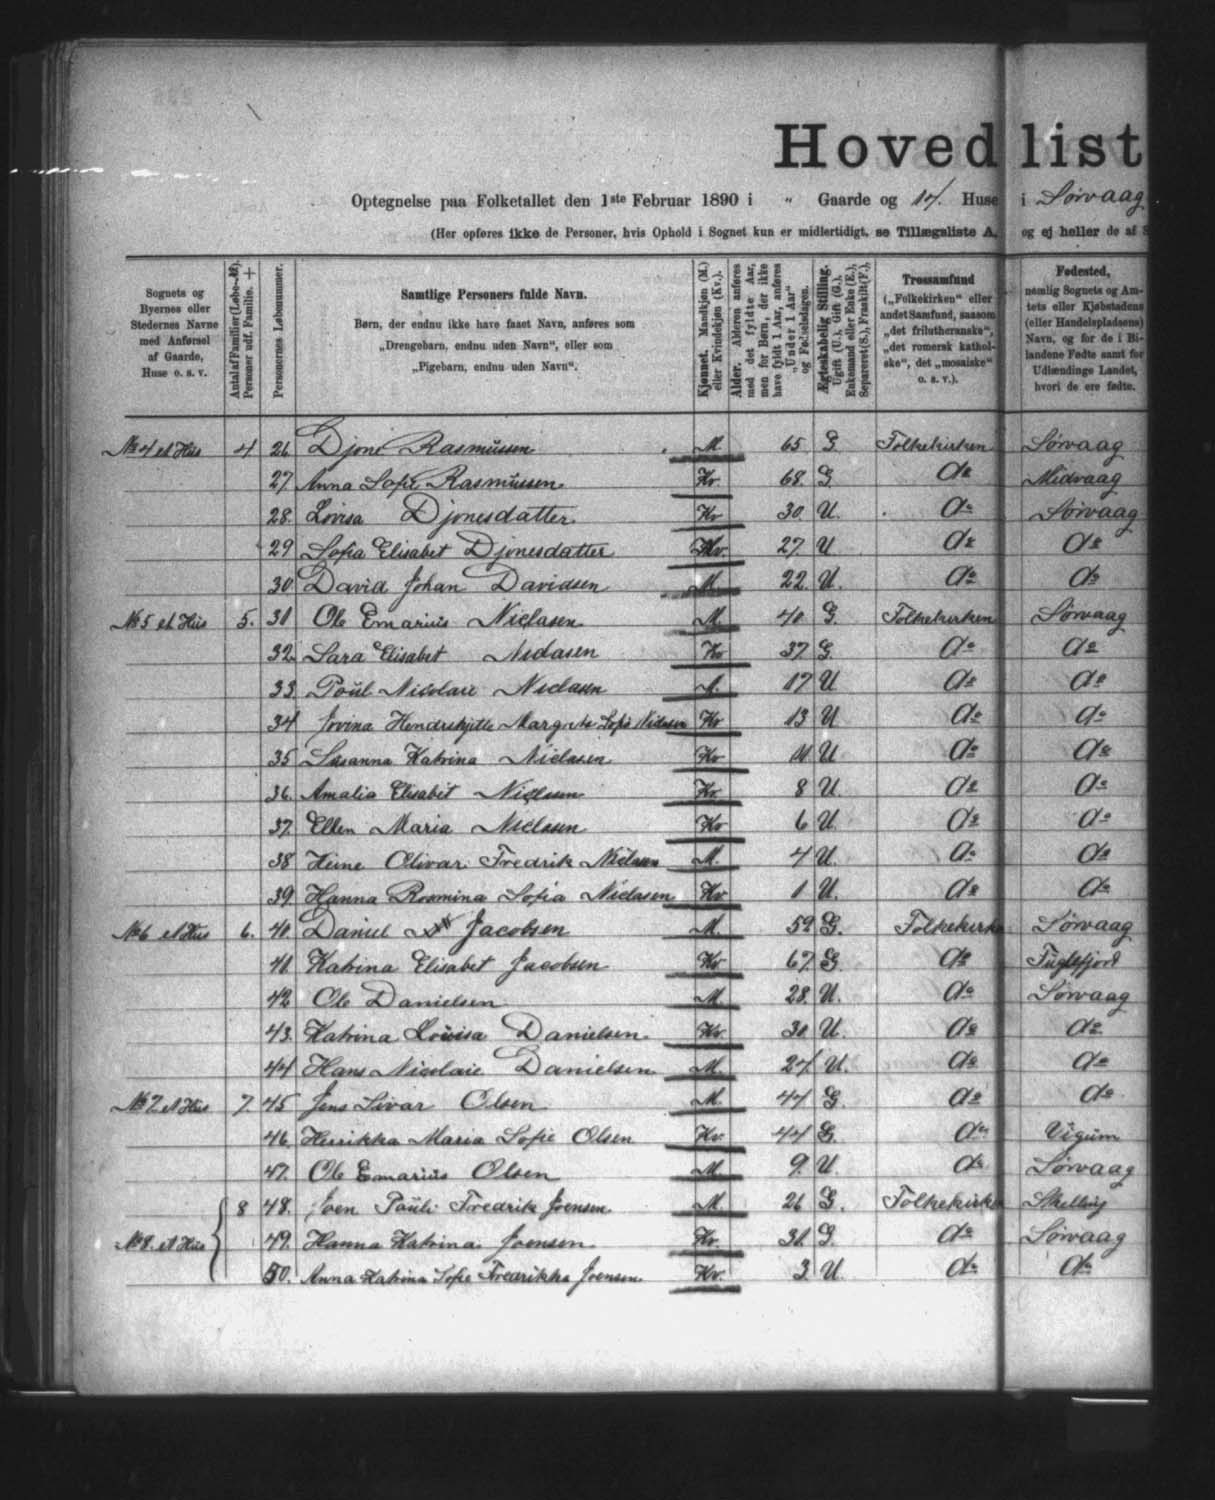 Hovedlist
Optegnelse paa Folketallet den 1ste Februar 1890 i " Gaarde og 17. Huse i Sørvaag
(Her opføres ikke de Personer, hvis Ophold i Sognet kun er midlertidigt, se Tillægsliste A, og ej heller de af S
Sognets og Byernes eller Stedernes Navne med Anførsel af Gaarde, Huse o. s. v.
Antal af Familier (Løbe-№). Personer udf. Familie. +
Personernes Løbenummer.
Samtlige Personers fulde Navn.
Børn, der endnu ikke have faaet Navn, anføres som
„Drengebarn, endnu uden Navn“, eller som
„Pigebarn, endnu uden Navn“.
Kjønnet. Mandkjøn (M.) eller Kvindekjøn (Kv.).
Alder. Alderen anføres med det fyldte Aar, men for Børn, der ikke have fyldt 1 Aar, anføres „Under 1 Aar“ og Fødselsdagen.
Ægteskabelig Stilling. Ugift (U.), Gift (G.), Enkemand eller Enke (E.), Separeret (S.), Fraskilt (F.),
Trossamfund („Folkekirken“ eller andet Samfund, saasom „det frilutheranske“, „det romersk katholske“, det „mosaiske“ o. s. v.).
Fødested, nemlig Sognets og Amtets eller Kjøbstadens (eller Handelspladsens) Navn, og for de i Bilandene Fødte samt for Udlændinge Landet, hvori de ere fødte.
No 4 et Hus 4 26 Djone Rasmussen M. 65 G Folkekirken Sørvaag
27 Anna Sofie Rasmussen Kv. 68. G. do Midvaag
28. Lovisa Djonesdatter Kv 30. U. do Sørvaag
29 Sofia Elisabet Djonesdatter Kv. 27. U do do
30 David Johan Davidsen M. 22. U. do do
No 5 et Hus 5. 31 Ole Emarius Niclasen M. 40 G. Folkekirken Sørvaag
32. Sara Elisabet Niclasen Kv 37 G. do do
33 Poul Nicolaie Niclasen M. 17 U do do
34 Jovina Hendrikjitte Margreta Sofie Niclasen Kv 13 U do do
35 Susanna Katrina Niclasen Kv 11 U do do
36. Amalia Elisabet Niclasen Kv. 8 U. do do
37. Ellen Maria Niclasen Kv 6 U. do do
38 Heine Olivar Fredrik Niclasen M. 4 U. do do
39. Hanna Rosmina Sofia Niclasen Kv 1 U. do do
No 6 et Hus 6. 40. Daniel Jacobsen M. 59 G. Folkekirke Sørvaag
41. Katrina Elisabet Jacobsen Kv 67. G do Fuglefjord
42. Ole Danielsen M. 28. U. do Sørvaag
43. Katrina Louisa Danielsen Kv. 30 U. do do
44 Hans Nicolaie Danielsen M. 24 U. do do
No 7 et Hus 7. 45 Jens Sivar Olsen M. 44 G. do do
46. Henrikka Maria Sofie Olsen Kv. 44 G. do Vigum
47. Ole Emarius Olsen M. 9. U. do Sørvaag
8 48. Joen Pauli Fredrik Joensen M. 26 G. Folkekirke Skelling
No 8. et Hus 49. Hanna Katrina Joensen Kv. 31. G. do Sørvaag
50. Anna Katrina Sofie Fredrikka Joensen Kv. 3 U. do do